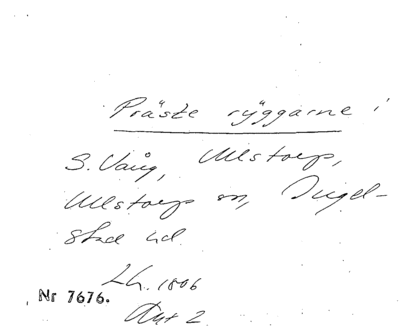 Prästeryggarne i
S. Vång, Ullstorp,
Ullstorps sn, Ingel-
stad hd.
Lh. 1806
Nr 7676.
Akt 2